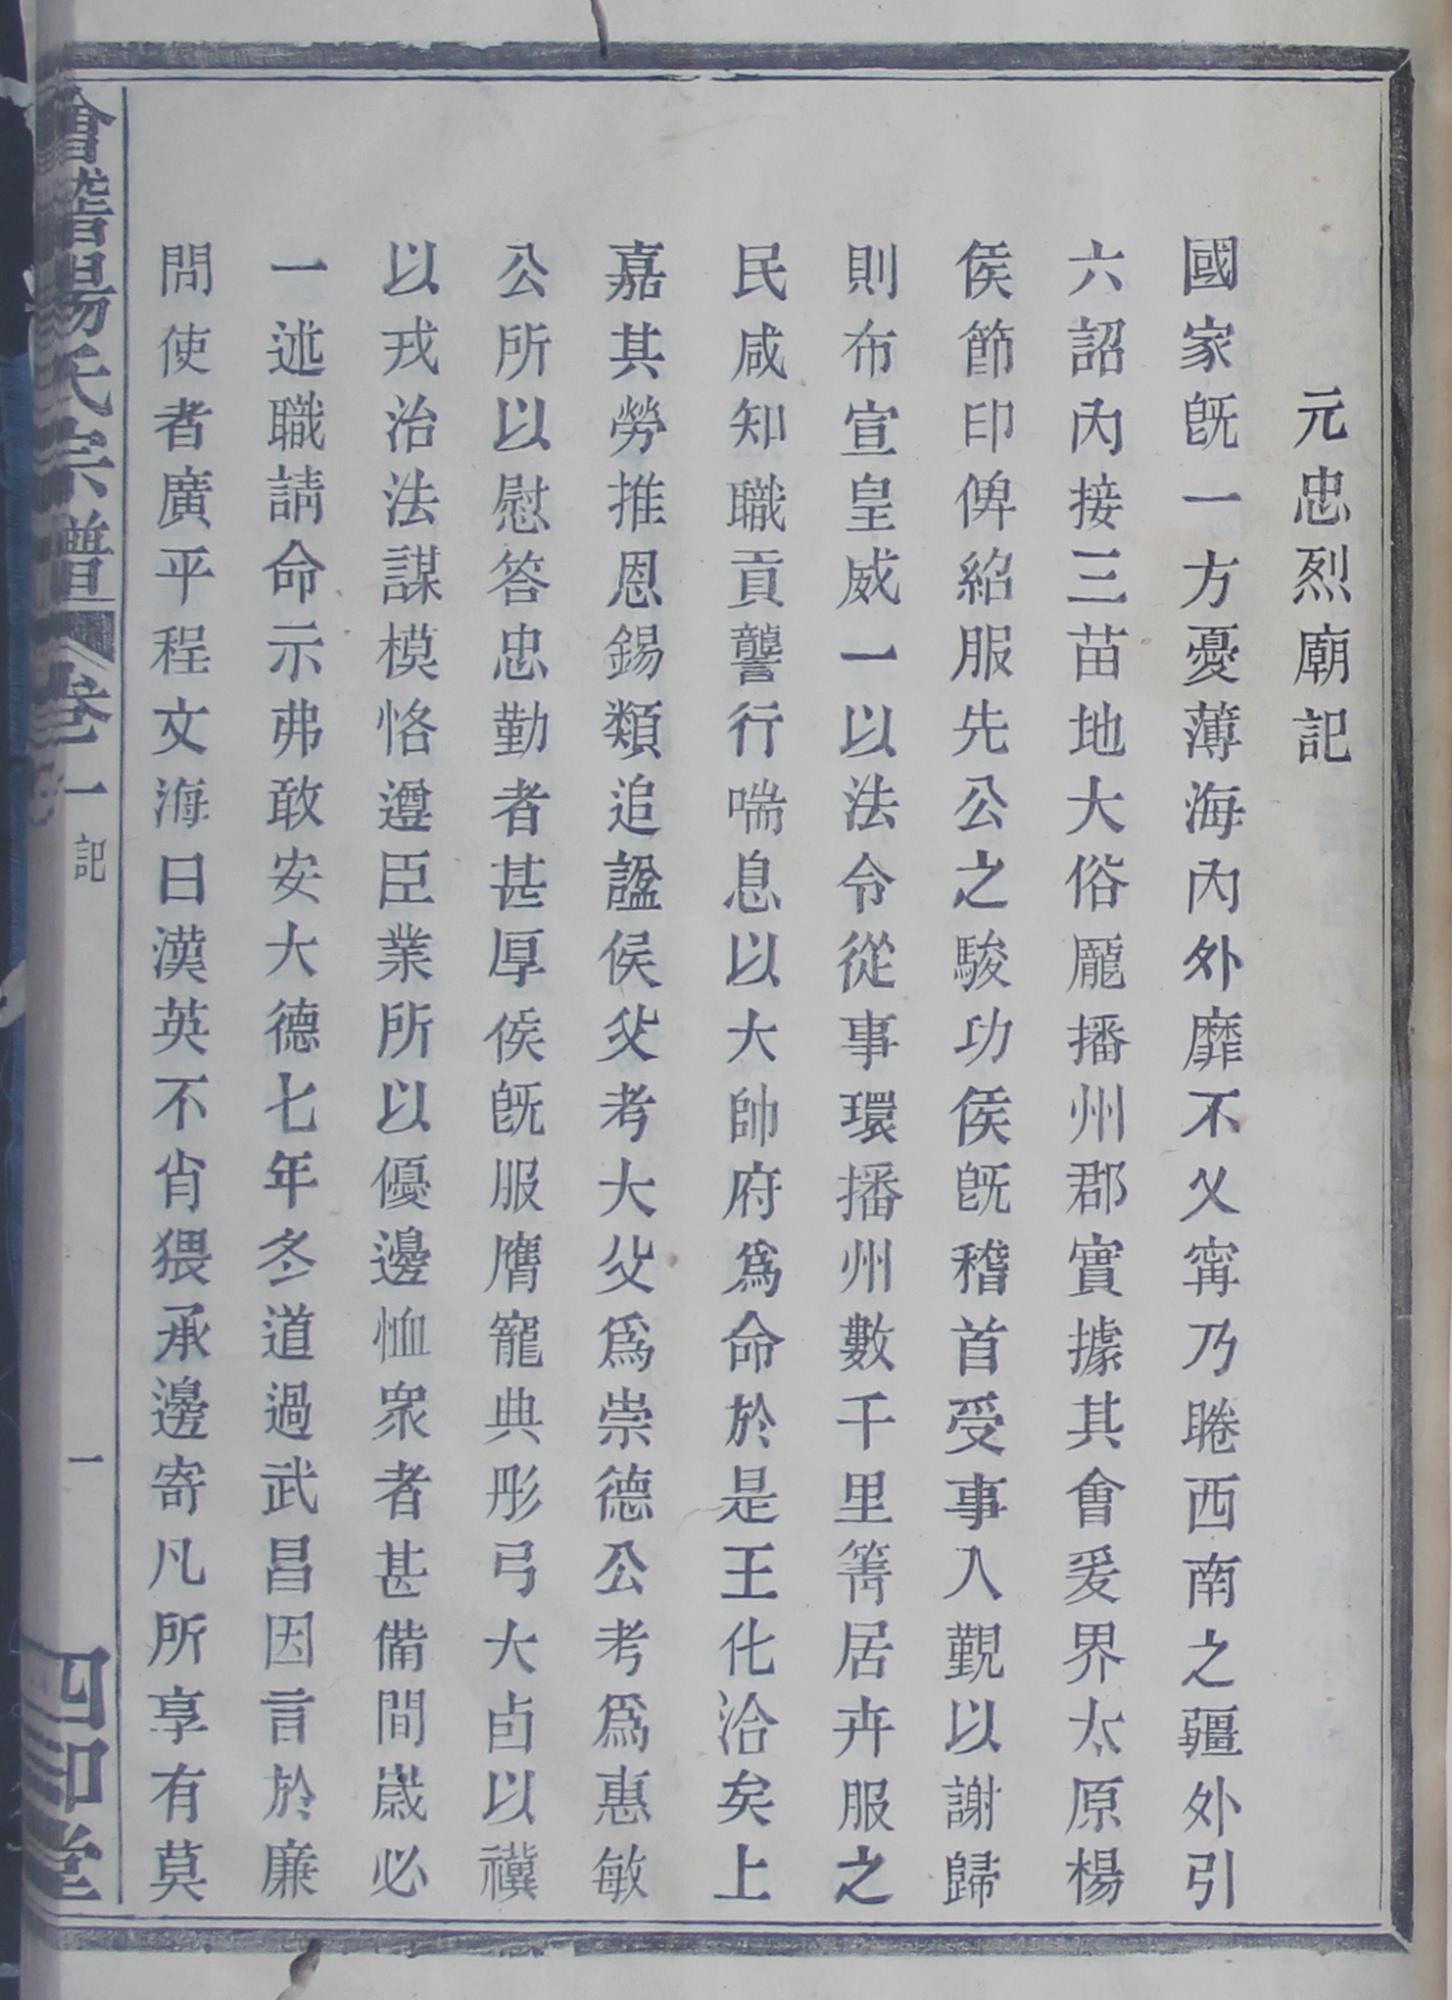 元忠烈廟記
國家旣一方憂薄海內外靡不乂甯乃睠西南之疆外引
六詔內接三苗地大俗龐播州郡實據其會爰畀太原楊
侯節印俾紹服先公之駿功侯旣稽首受事入覲以謝歸
則布宣皇威一以法令從事環播州數千里箐居卉服之
民咸知職貢讋行喘息以大帥府爲命於是王化洽矣上
嘉其勞推恩錫類追諡侯父考大父爲崇德公考爲惠敏
公所以慰答忠勤者甚厚侯旣服膺寵典彤弓大卣以禩
以戎治法謀模恪遵臣業所以優邊恤衆者甚備間歲必
一述職請命示弗敢安大德七年冬道過武昌因言於廉
問使者廣平程文海曰漢英不肖猥承邊寄凡所享有莫
會稽楊氏宗譜 卷一 記 一 四知堂